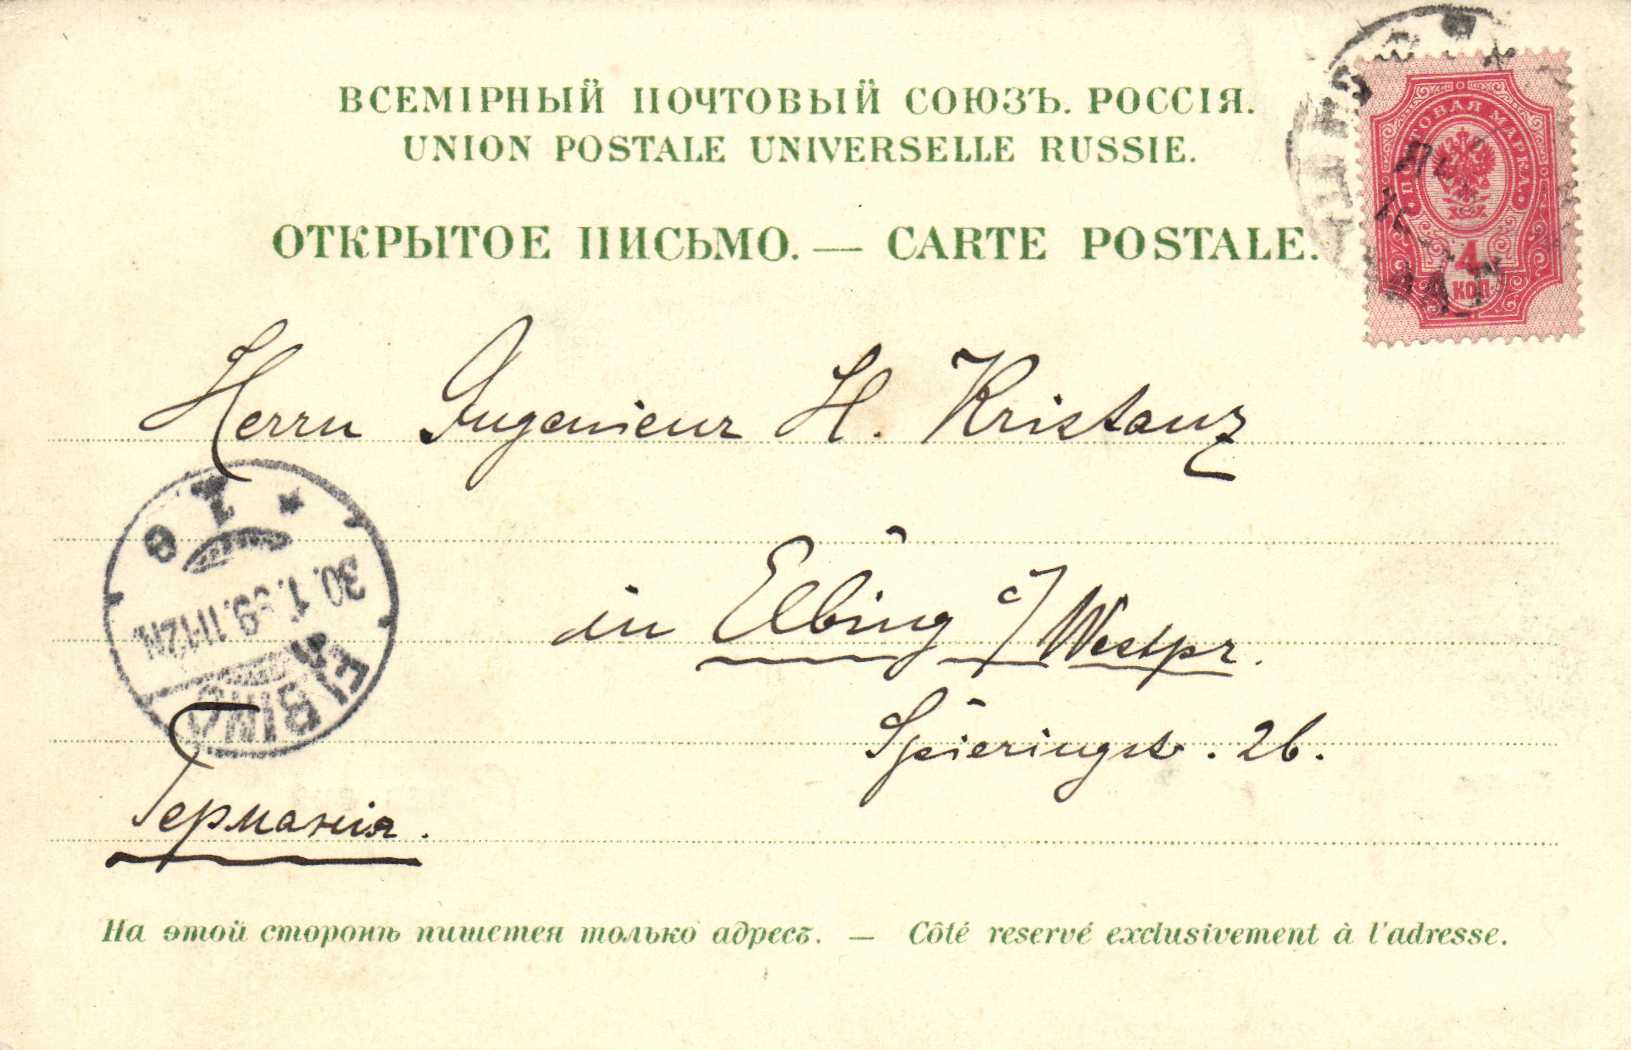 ВСЕМІРНЫЙ ПОЧТОВЫЙ СОЮЗЪ. РОССІЯ.
UNION POSTALE UNIVERSELLE RUSSIE.
ОТКРЫТОЕ ПИСЬМО. — CARTE POSTALE.
ПОЧТОВАЯ МАРКА
4
КОП
Herrn Ingenieur H. Kristanz
in Elbing i/Westpr.
Spieringst. 26.
30.1.99.11-12N.
ELBING
Германія.
На этой сторонѣ пишется только адресъ. — Côté reservé exclusivement à l'adresse.